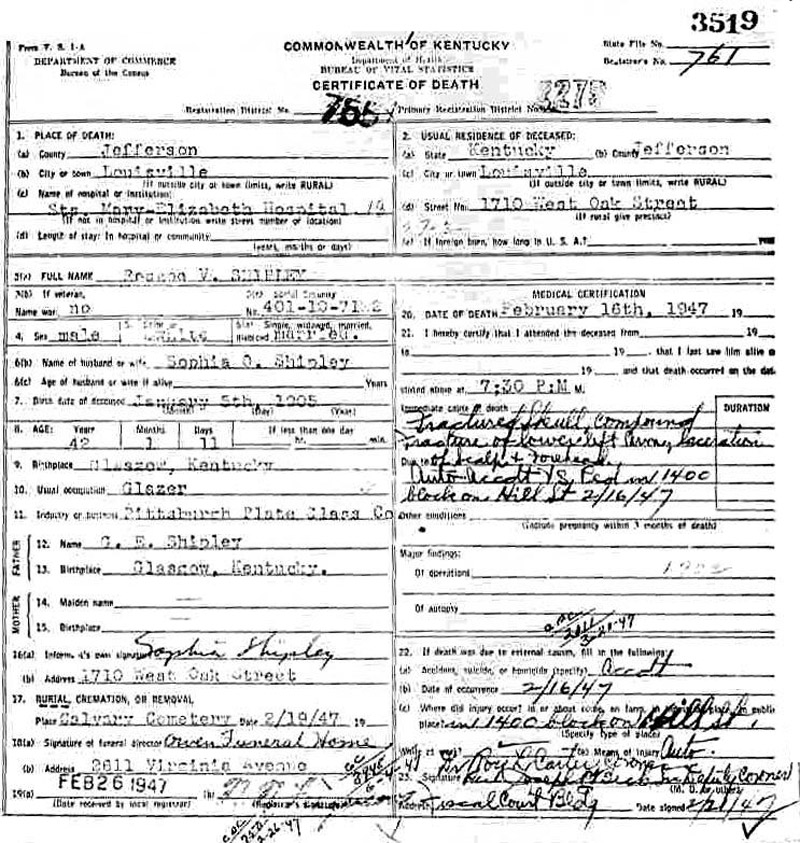 3519
From V. S. 1-A
DEPARTMENT OF COMMERCE
Bureau of the Census
COMMONWEALTH OF KENTUCKY
Department of Health
BUREAU OF VITAL STATISTICS
CERTIFICATE OF DEATH
State File No.
Registrar's No. 761
Registration District No. 755 Primary Registration District No.
1. PLACE OF DEATH:
(a) County Jefferson
(b) City or town Louisville
(If outside city or town limits, write RURAL)
(c) Name of hospital or institution:
Sts. Mary-Elizabeth Hospital
(If not in hospital or institution write street number or location)
(d) Length of stay: In hospital or community
(years, months or days)
2. USUAL RESIDENCE OF DECEASED:
(a) State Kentucky (b) County Jefferson
(c) City or town Louisville
(If outside city or town limits, write RURAL)
(d) Street No. 1710 West Oak Street
(If rural give precinct)
(e) If foreign born, how long in U. S. A.?
3(a) FULL NAME V. SHIPLEY
3(b) If veteran,
Name war no
3(c) Social Security
No. 401-10-
4. Sex male 5. Color or white 6(a) Single, widowed, married,
divorced married.
6(b) Name of husband or wife Sophia O. Shipley
6(c) Age of husband or wife if alive Years
7. Birth date of deceased January 5th, 1905
(Month) (Day) (Year)
8. AGE: Years Months Days If less than one day
42 1 11 hr. min.
9. Birthplace Glasgow, Kentucky
10. Usual occupation Glazer
11. Industry or business Pittsburgh Plate Glass Co
FATHER
12. Name G. E. Shipley
13. Birthplace Glasgow, Kentucky.
MOTHER
14. Maiden name
15. Birthplace
16(a) Inform. t's own signature Sophia Shipley
(b) Address 1710 West Oak Street
17. BURIAL, CREMATION, OR REMOVAL
Place Calvary Cemetery Date 2/19/47 19
18(a) Signature of funeral director Owen Funeral Home
(b) Address 2611 Virginia Avenue
19(a) FEB 26 1947 (b)
(Date received by local registrar) (Registrar's signature)
MEDICAL CERTIFICATION
20. DATE OF DEATH February 16th, 1947 19
21. I hereby certify that I attended the deceased from 19
to 19 , that I last saw him alive o
19 and that death occurred on the date
stated above at 7:30 P.M M.
Immediate cause of death
DURATION
Fractured Skull, compound
fracture of lower left , laceration
Due to of scalp & forehead.
Auto Accdt VS. Ped in 1400
block on Hill St 2/16/47
Other conditions
(Include pregnancy within 3 months of death)
Major findings:
Of operations
Of autopsy
22. If death was due to external causes, fill in the following:
(a) Accident, suicide, or homicide (specify) Accdt
(b) Date of occurrence 2/16/47
(c) Where did injury occur? in or about home, on farm, in industrial place, in public
place in 1400 block on Hill St.
(Specify type of place)
While at work? (e) Means of injury Auto.
Dr Roy L. Carter Coroner
23. Signature Deputy Coroner
(M. D. or other)
Address Fiscal Court Bldg Date signed 2/21/47